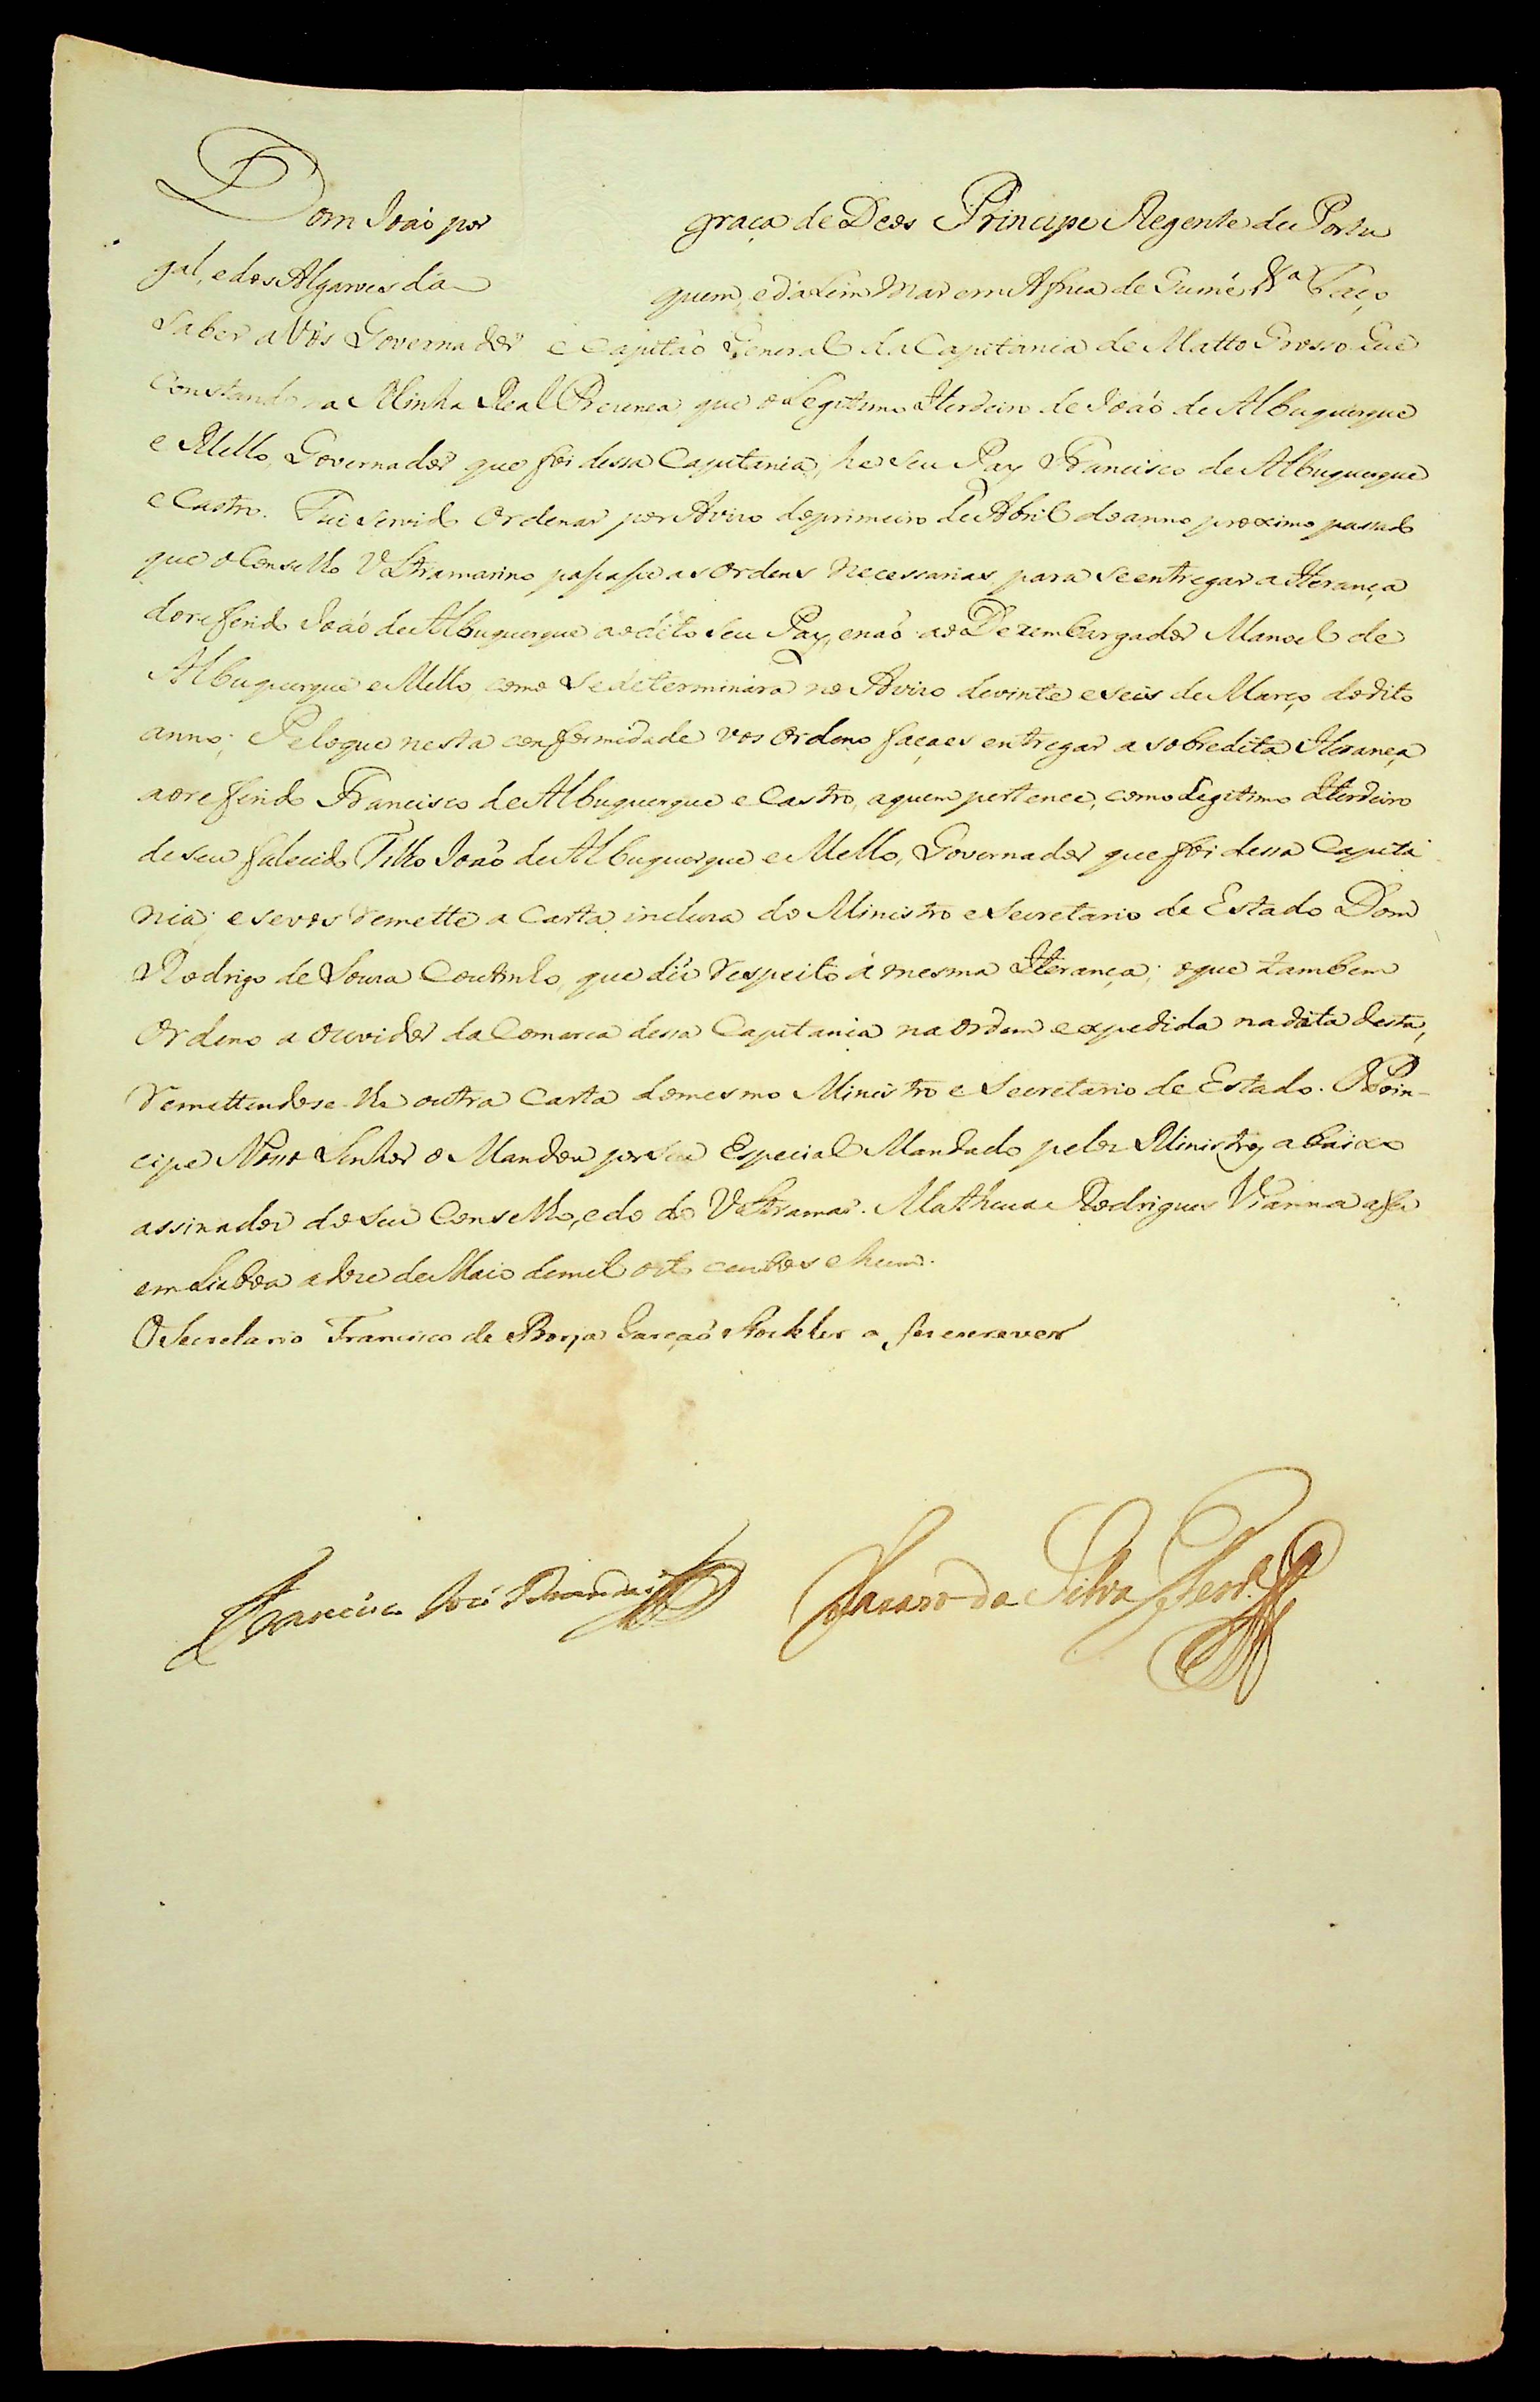 Dom João por graça de Deos Principe Regente de Portu
gal, e dos Algarves dá quem, e dálem Mar em Africa de Guiné &ª Faço
saber a Vós Governador e Capitaõ General da Capitania de Matto Grosso Que
constando na Minha Real Prezença, que o Legitimo Herdeiro de Joaõ de Albuquerque
e Mello, Governador que foi dessa Capitania, he seu Pay Francisco de Albuquerque
e Castro. Fui Servido Ordenar por Avizo do primeiro de Abril do anno proximo passado
que o Conselho Ultramarino passasse as ordens necessarias para se entregar a Herança
do referido Joaõ de Albuquerque ao dito seu Pay, e naõ ao Dezembargador Manoel de
Albuquerque e Mello como se determinára no Avizo de vinte e seis de Março do dito
anno; Pelo que nesta conformidade vos ordeno façaes entregar a sobredita Herança
ao referido Francisco de Albuquerque e Castro, a quem pertence, como Legitimo Herdeiro
de seu falecido Filho Joaõ de Albuquerque e Mello, Governador que foi dessa Capita
nia; e se vos remette a Carta incluza do Ministro e Secretario de Estado Dom
Rodrigo de Souza Coutinho, que diz respeito á mesma Herança; o que tambem
Ordeno a ouvidor da Comarca dessa Capitania na ordem expedida na data desta,
remettendose lhe outra Carta do mesmo Ministro e Secretario de Estado. O Prin-
cipe Nosso Senhor o Mandou por seu Especial Mandado pelos Ministros abaixo
assinados do seu Conselho, e do do Ultramar. Matheus Rodrigues Vianna a fez
em Lisboa a doze de Maio de mil oito centos e hum.
O Secretario Francisco de Borja Garçaõ Stockler a fez escrever
Francisco José Brandaõ Lazaro da Silva Ferrª